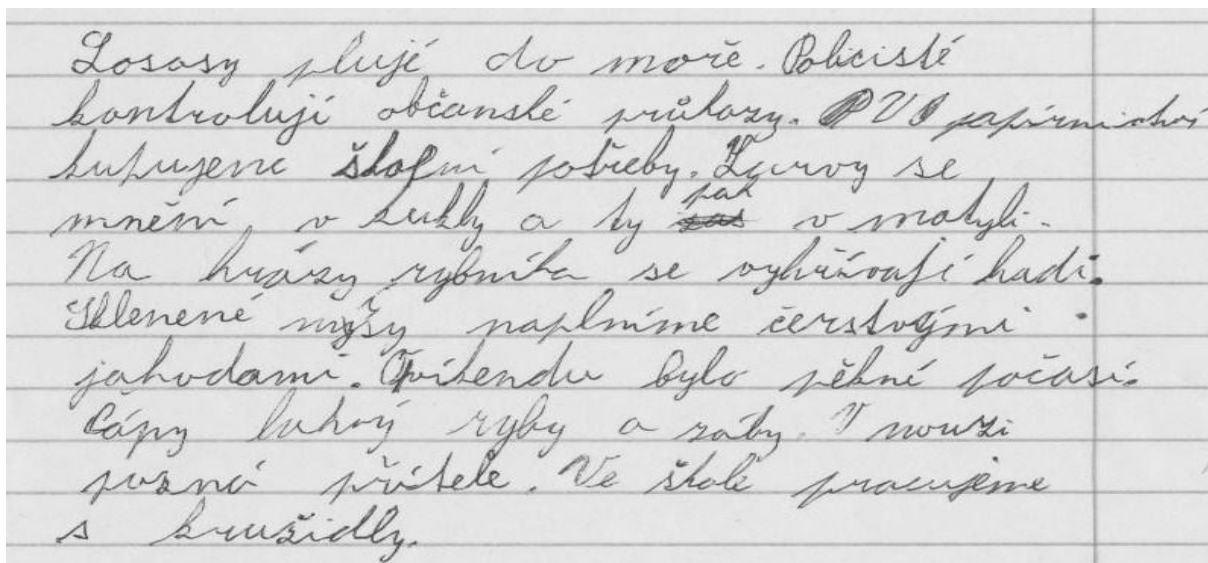 Lososy plují do moře. Policisté
kontrolují občanské průkazy. V papírnictví
kupujeme školní potřeby. Larvy se
mnění v kukly a ty pak v motyli.
Na hrázy rybníka se vyhřívají hadi.
Skleněné mýsy naplníme čerstvými
jahodami. O víkendu bylo pěkné počasí.
Čápy loví ryby a záby. V nouzi
pozná přítele. Ve škole pracujeme
s kružidly.